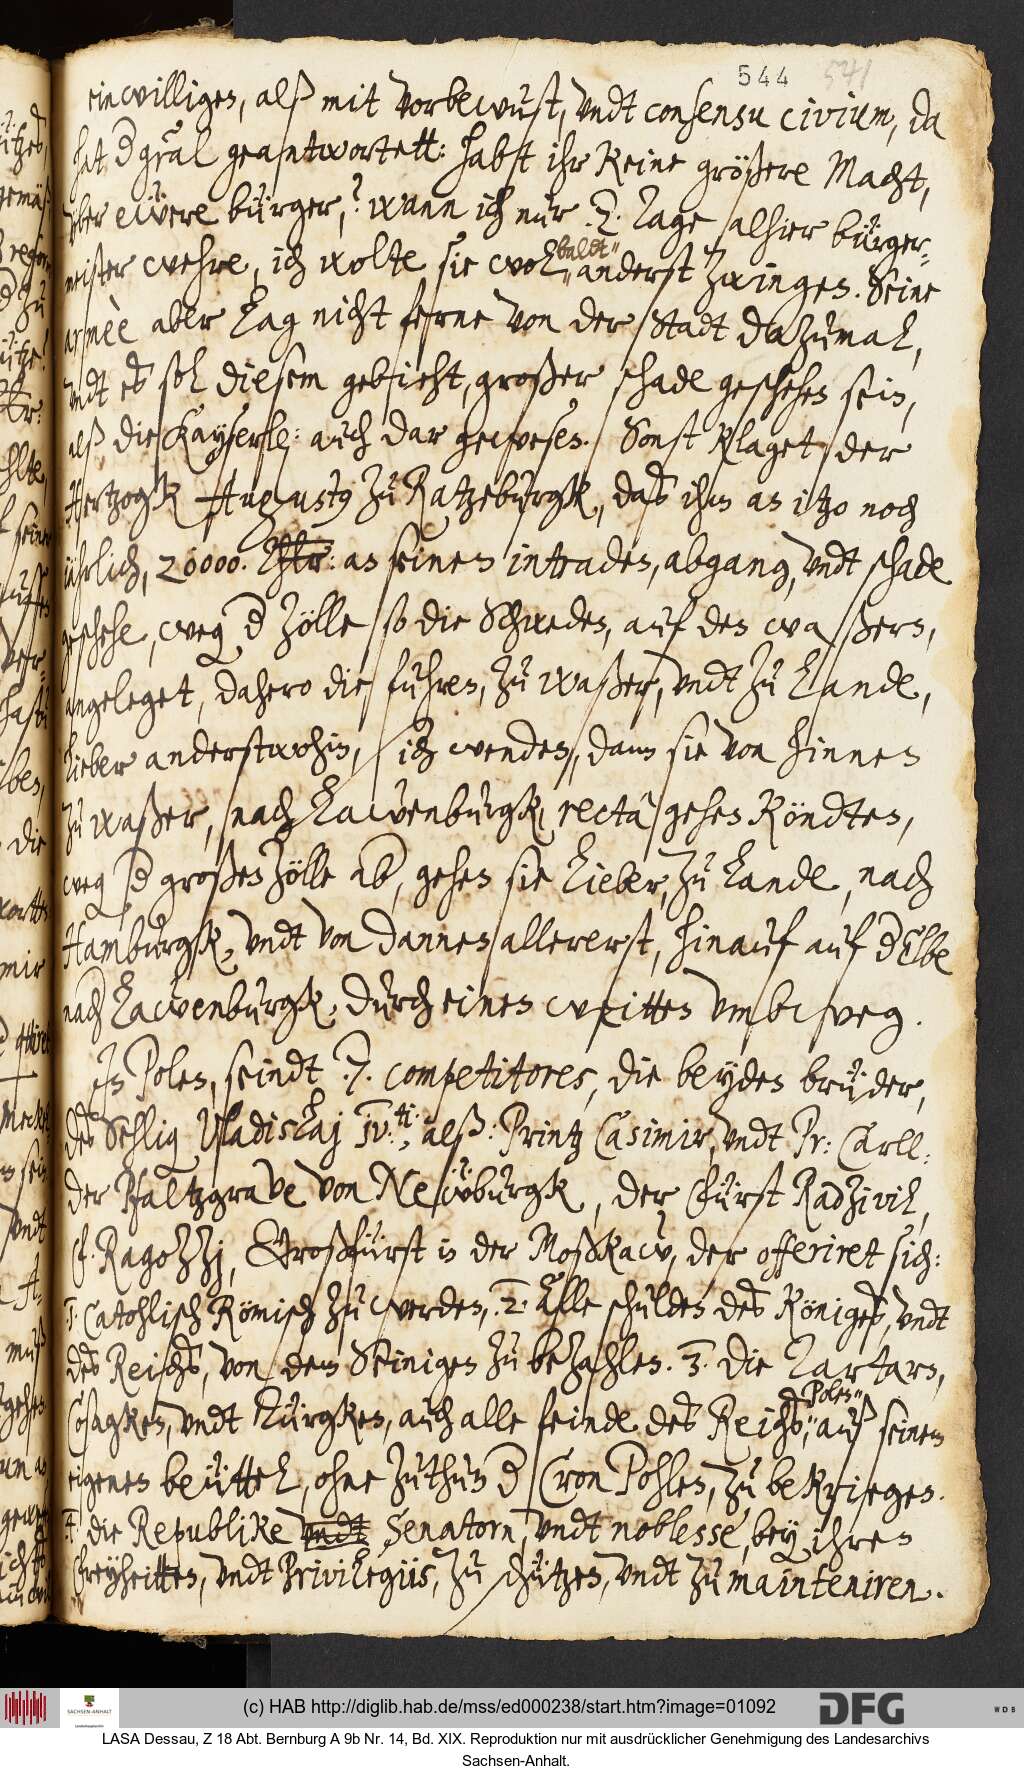 544 541
einwilligen, alß mit vorbewust, vndt consensu civium, da
hat d gral geantwortett: habt ihr keine größere Macht,
vber ewere bürger,? wann ich nur 2. Tage alhier bürger=
meister wehre, ich wolte sie wol, baldt" anderst zwingen. Seine
armèe aber lag nicht ferne von der Stadt dazumal,
vndt es sol diesem gebieht, großer schade geschehen sein,
alß die Kayserl: auch dar gewesen. Sonst klaget der
Hertzogk Augustus zu Ratzeburgk, daß ihm an itzo noch
jährlich, 20000. Thlr: an seinen intraden, abgang, vndt schade
geschehe, weg d Zölle so die Schweden, auf den waßern,
angeleget, dahero die fuhren, zu waßer, vndt zu Lande,
lieber anderstwohin, sich wenden, dann sie von hinnen
zu waßer, nach Lawenburgk, rectà gehen köndten,
weg d großen Zölle ab, gehen sie lieber, zu Lande, nach
Hamburgk, vndt von dannen allererst, hinauf auf d Elbe
nach Lawenburgk, durch einen weitten vmbweg.
In Polen, seindt .7. competitores, die beyden brüder,
des Sehlig Vladislaj IV.ti., alß: Printz Casimir, vndt Pr: Carll:
der Pfaltzgrave von Newburgk, der Fürst Radzivil,
F. Ragozzj, Großfürst in der Moßkaw, der offeriret sich:
1. Catohlisch Römisch zu werden, .2. Alle schulden des Königes, vndt
des Reichs, von dem Seinigen zu bezahlen. 3. Die Tartarn,
Cosagken, vndt Türgken, auch alle feinde des Reichs, d Polen" auß seinem
eigenen beüttel, ohne zuthun d Cron Pohlen, zu bekriegen.
4. die Republike vndt Senatorn, vndt noblesse, bey ihren
Freyheitten, vndt Privilegiis, zu schützen, vndt zu mainteniren.
(c) HAB http://diglib.hab.de/mss/ed000238/start.htm?image=01092
SACHSEN-ANHALT
DFG
WDB
LASA Dessau, Z 18 Abt. Bernburg A 9b Nr. 14, Bd. XIX. Reproduktion nur mit ausdrücklicher Genehmigung des Landesarchivs
Sachsen-Anhalt.